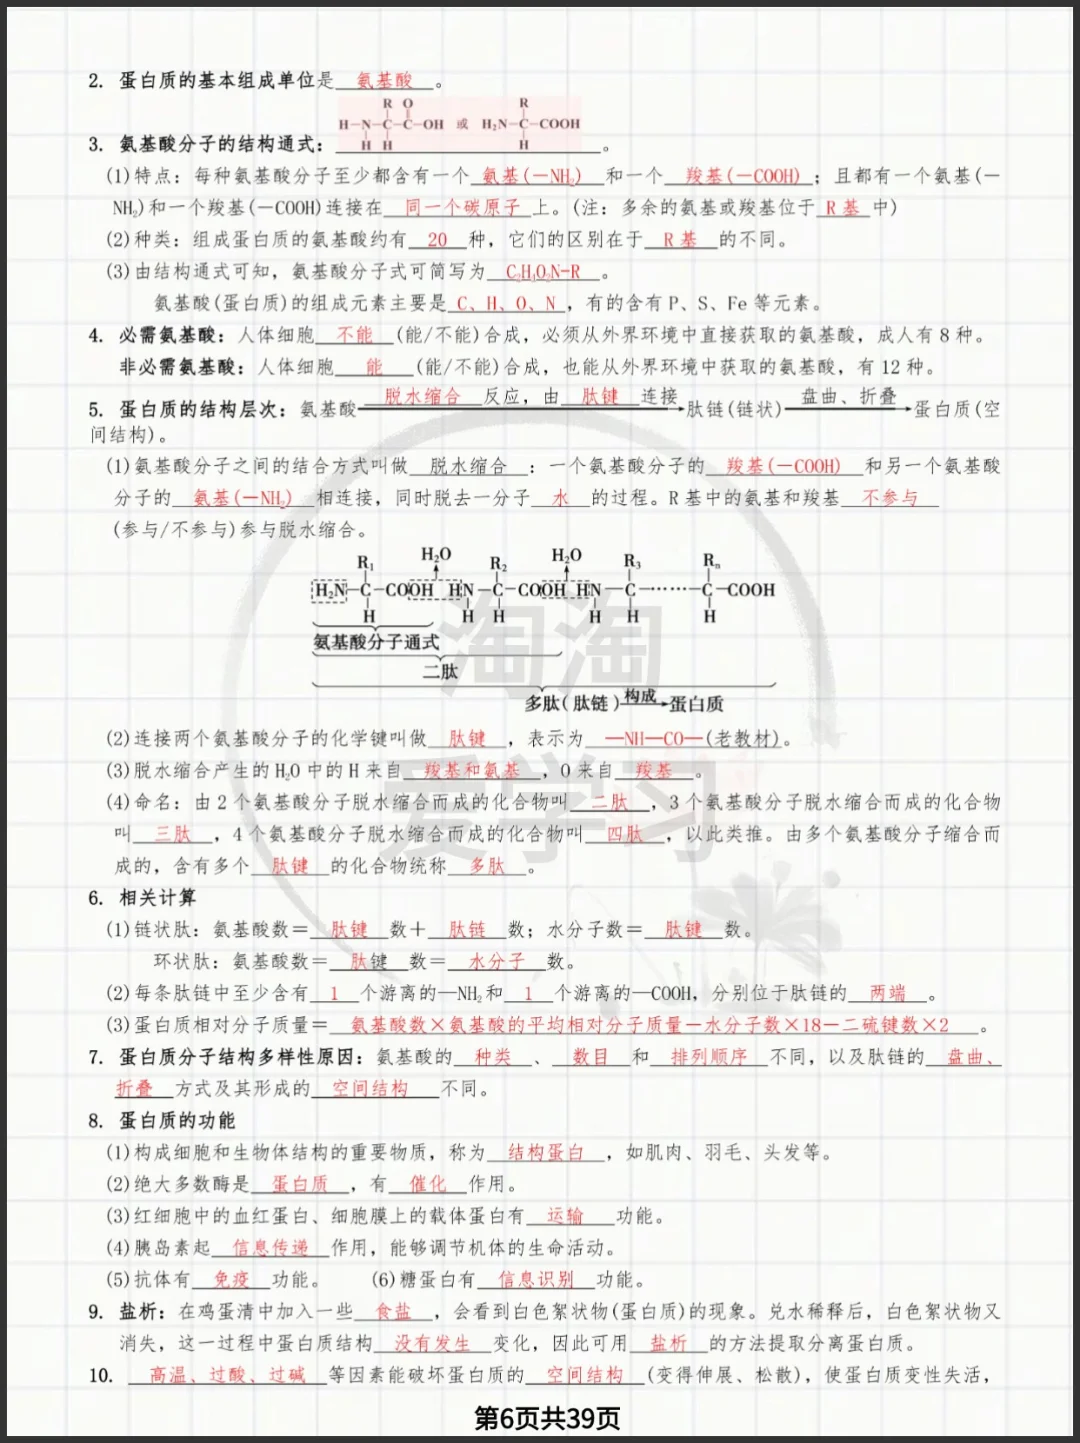 2. 蛋白质的基本组成单位是 氨基酸 。
R O
H—N—C—C—OH 或 H₂N—C—COOH
R
H H H
3. 氨基酸分子的结构通式: 。
(1)特点：每种氨基酸分子至少都含有一个 氨基(—NH₂) 和一个 羧基(—COOH) ；且都有一个氨基(—
NH₂)和一个羧基(—COOH)连接在 同一个碳原子 上。(注：多余的氨基或羧基位于 R基 中)
(2)种类：组成蛋白质的氨基酸约有 20 种，它们的区别在于 R基 的不同。
(3)由结构通式可知，氨基酸分子式可简写为 C₂H₄O₂N-R 。
氨基酸(蛋白质)的组成元素主要是 C、H、O、N ，有的含有P、S、Fe等元素。
4. 必需氨基酸：人体细胞 不能 (能/不能)合成，必须从外界环境中直接获取的氨基酸，成人有8种。
非必需氨基酸：人体细胞 能 (能/不能)合成，也能从外界环境中获取的氨基酸，有12种。
5. 蛋白质的结构层次：氨基酸 脱水缩合 反应，由 肽键 连接→肽链(链状) 盘曲、折叠→蛋白质(空
间结构)。
(1)氨基酸分子之间的结合方式叫做 脱水缩合 ：一个氨基酸分子的 羧基(—COOH) 和另一个氨基酸
分子的 氨基(—NH₂) 相连接，同时脱去一分子 水 的过程。R基中的氨基和羧基 不参与
(参与/不参与)参与脱水缩合。
R₁ H₂O R₂ H₂O R₃ Rₙ
H₂N—C—COOH HN—C—COOH HN—C—······—C—COOH
H H H H H H
氨基酸分子通式
二肽
多肽(肽链) 构成→蛋白质
(2)连接两个氨基酸分子的化学键叫做 肽键 ，表示为 —NH—CO—(老教材)。
(3)脱水缩合产生的H₂O中的H来自 羧基和氨基 ，O来自 羧基 。
(4)命名：由2个氨基酸分子脱水缩合而成的化合物叫 二肽 ，3个氨基酸分子脱水缩合而成的化合物
叫 三肽 ，4个氨基酸分子脱水缩合而成的化合物叫 四肽 ，以此类推。由多个氨基酸分子缩合而
成的，含有多个 肽键 的化合物统称 多肽 。
6. 相关计算
(1)链状肽：氨基酸数＝ 肽键 数＋ 肽链 数；水分子数＝ 肽键 数。
环状肽：氨基酸数＝ 肽键 数＝ 水分子 数。
(2)每条肽链中至少含有 1 个游离的—NH₂和 1 个游离的—COOH，分别位于肽链的 两端 。
(3)蛋白质相对分子质量＝ 氨基酸数×氨基酸的平均相对分子质量－水分子数×18－二硫键数×2 。
7. 蛋白质分子结构多样性原因：氨基酸的 种类 、 数目 和 排列顺序 不同，以及肽链的 盘曲、
折叠 方式及其形成的 空间结构 不同。
8. 蛋白质的功能
(1)构成细胞和生物体结构的重要物质，称为 结构蛋白 ，如肌肉、羽毛、头发等。
(2)绝大多数酶是 蛋白质 ，有 催化 作用。
(3)红细胞中的血红蛋白、细胞膜上的载体蛋白有 运输 功能。
(4)胰岛素起 信息传递 作用，能够调节机体的生命活动。
(5)抗体有 免疫 功能。 (6)糖蛋白有 信息识别 功能。
9. 盐析：在鸡蛋清中加入一些 食盐 ，会看到白色絮状物(蛋白质)的现象。兑水稀释后，白色絮状物又
消失，这一过程中蛋白质结构 没有发生 变化，因此可用 盐析 的方法提取分离蛋白质。
10. 高温、过酸、过碱 等因素能破坏蛋白质的 空间结构 (变得伸展、松散)，使蛋白质变性失活，
淘淘
爱学习
第6页共39页